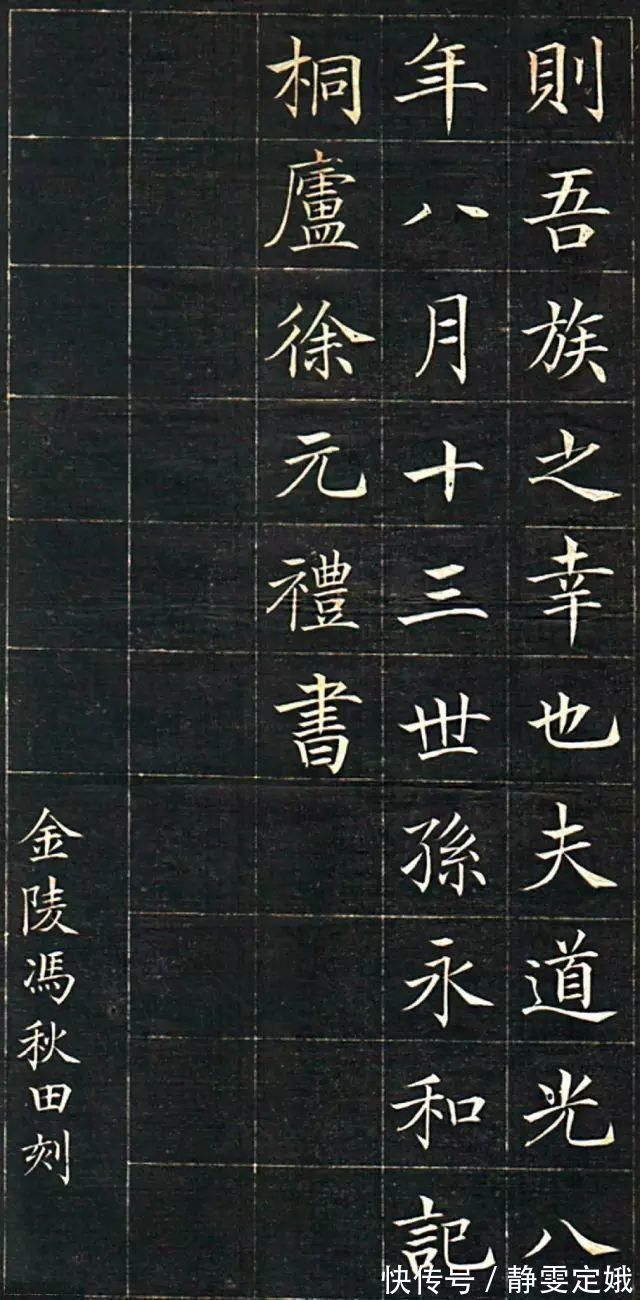 則吾族之幸也夫道光八
年八月十三世孫永和記
桐廬徐元禮書
金陵馮秋田刻
快传号/静雯定娥